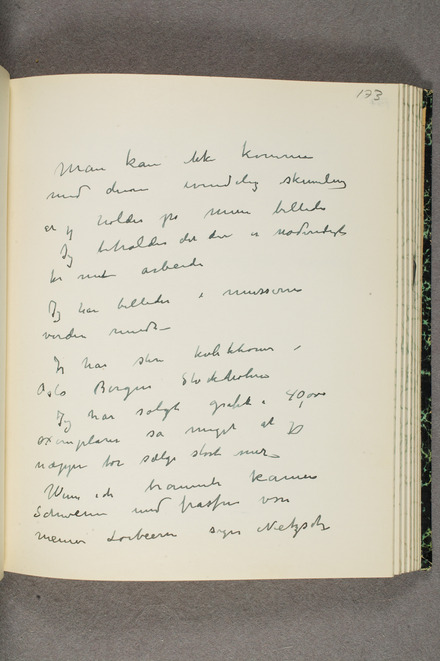 173
Man kan ikke komme
med denne evindelig skumling
at jg holder på mine billeder
Jg beholder det der er nødvendigt
for mit arbeide
Jg har billeder i museerne
verden rundt –
Jg har store kollektioner –
Oslo Bergen Stockholm
Jg har solgt grafik i 40,000
exemplarer så meget at jg
næppe bør sælge stort mer
Wenn ich
Schwelle und von
meinen Lorbeeren siger Nietzsche